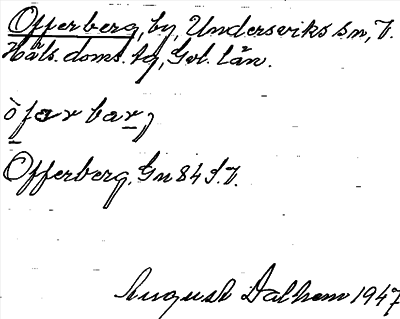 Offerberg, by, Undersviks sn, V.
Häls. doms. tg, Gvl. län.
òfarbarj
Offerberg. Gn 84 S.V.
August Dalhem 1947